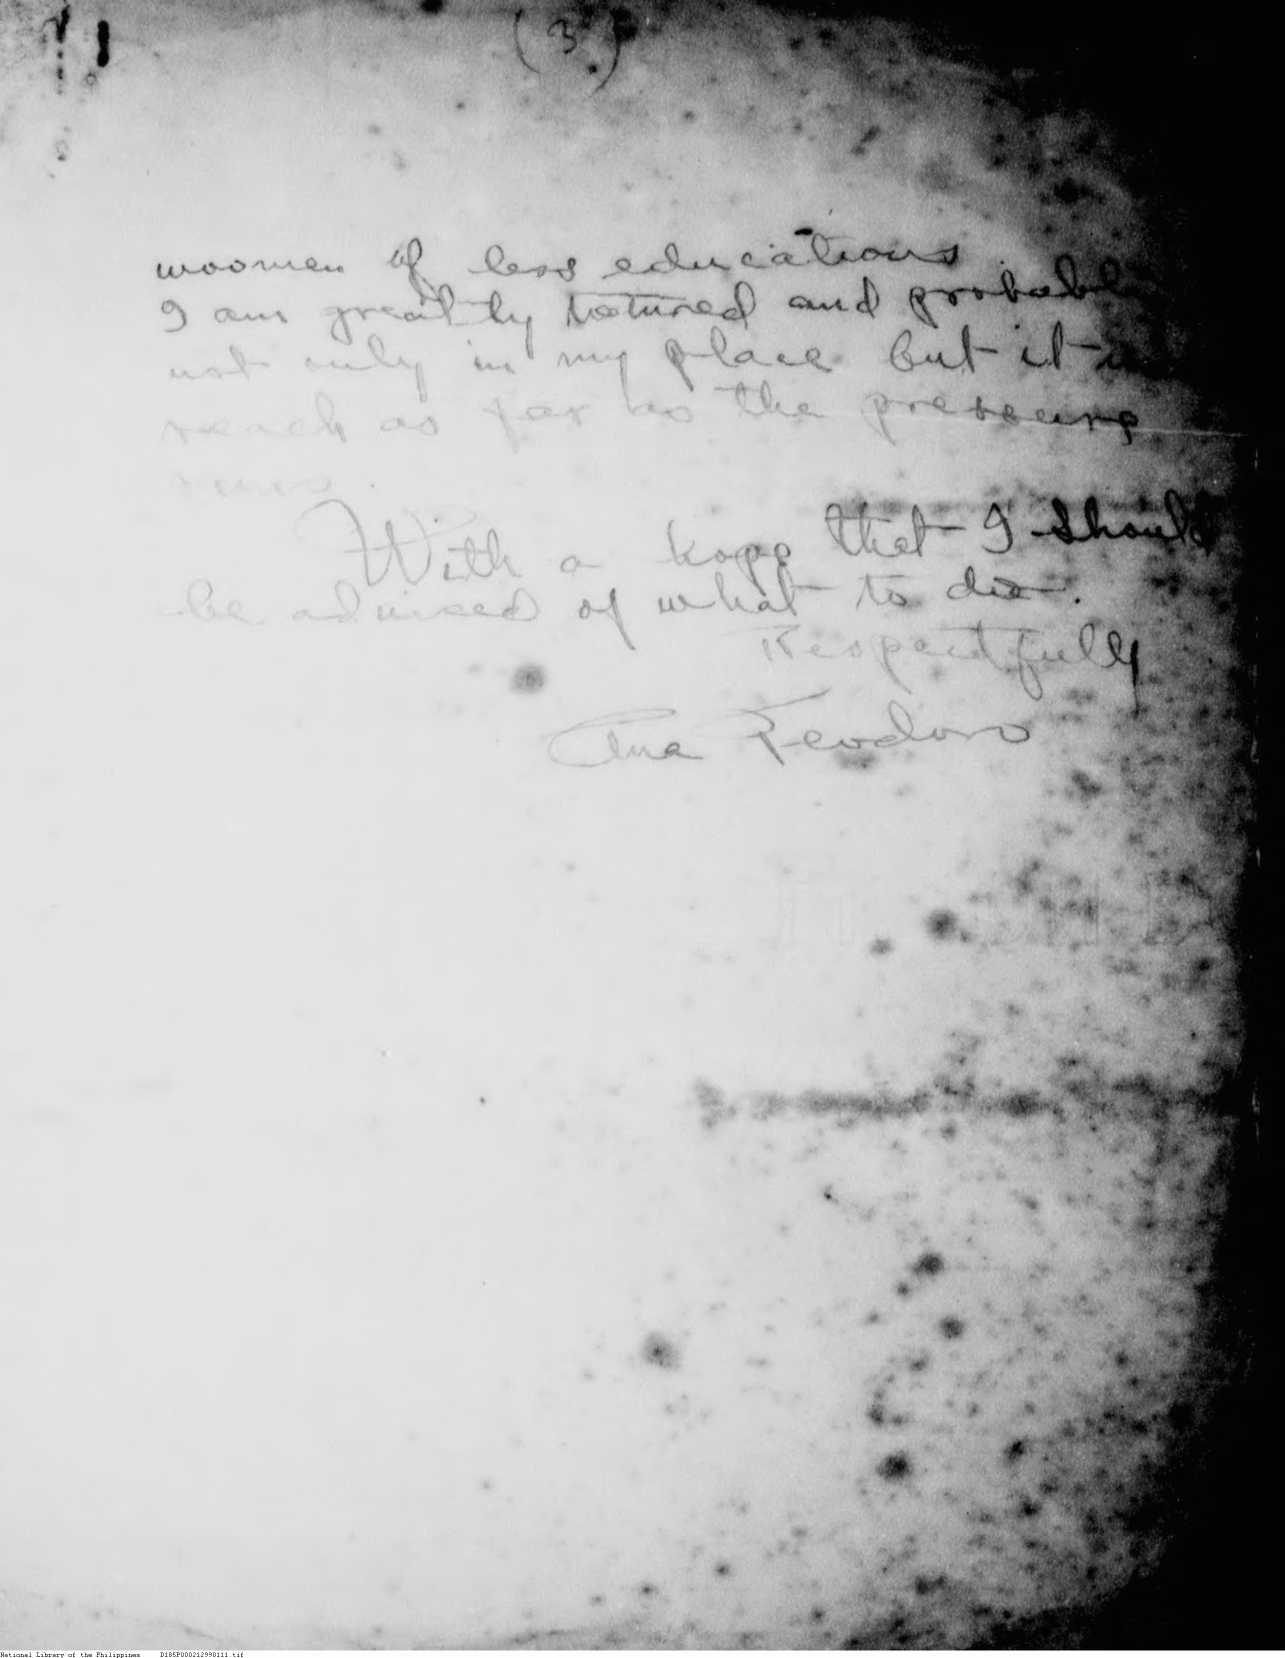 (3)
woomen of less educations.
I am greatly totured and probabl
not only in my place but it
reach as far as the
With a hope that I should
be adviced of what to do.
Respectfully
Ana Teodoro
National Library of the Philippines D185P000212990111.tif